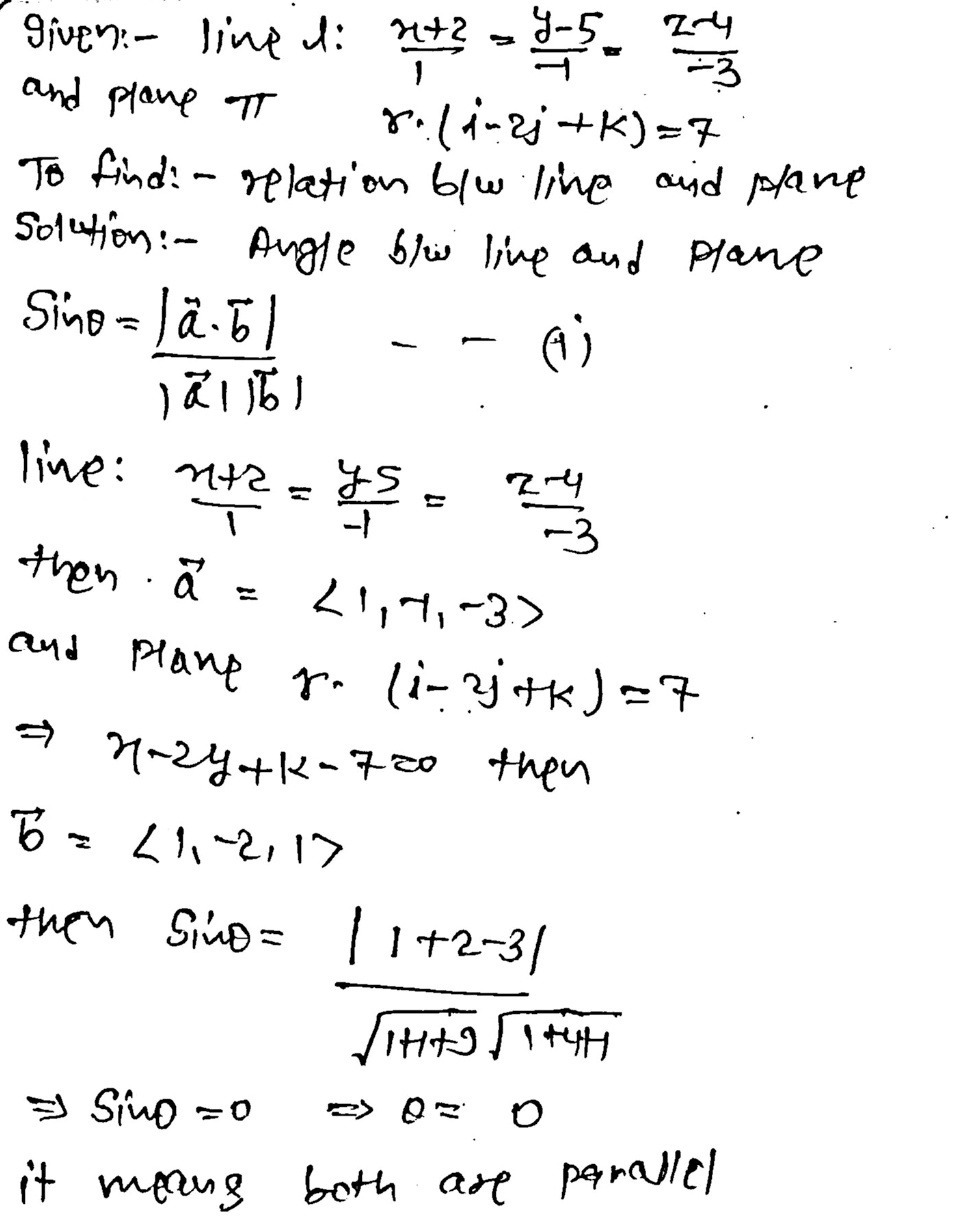 Given:- line l: x+2/1 = y-5/-1 = z-4/-3
and plane π r.(i-2j+k)=7
To find:- relation b/w line and plane
Solution:- Angle b/w line and plane
Sinθ = |a⃗.b⃗| / |a⃗||b⃗| - - (i)
line: x+2/1 = y-5/-1 = z-4/-3
then a⃗ = <1,-1,-3>
and plane r. (i-2j+k)=7
⇒ x-2y+k-7=0 then
b⃗ = <1,-2,1>
then Sinθ = |1+2-3| / √1+1+9 √1+4+1
⇒ Sinθ=0 ⇒ θ = 0
it means both are parallel